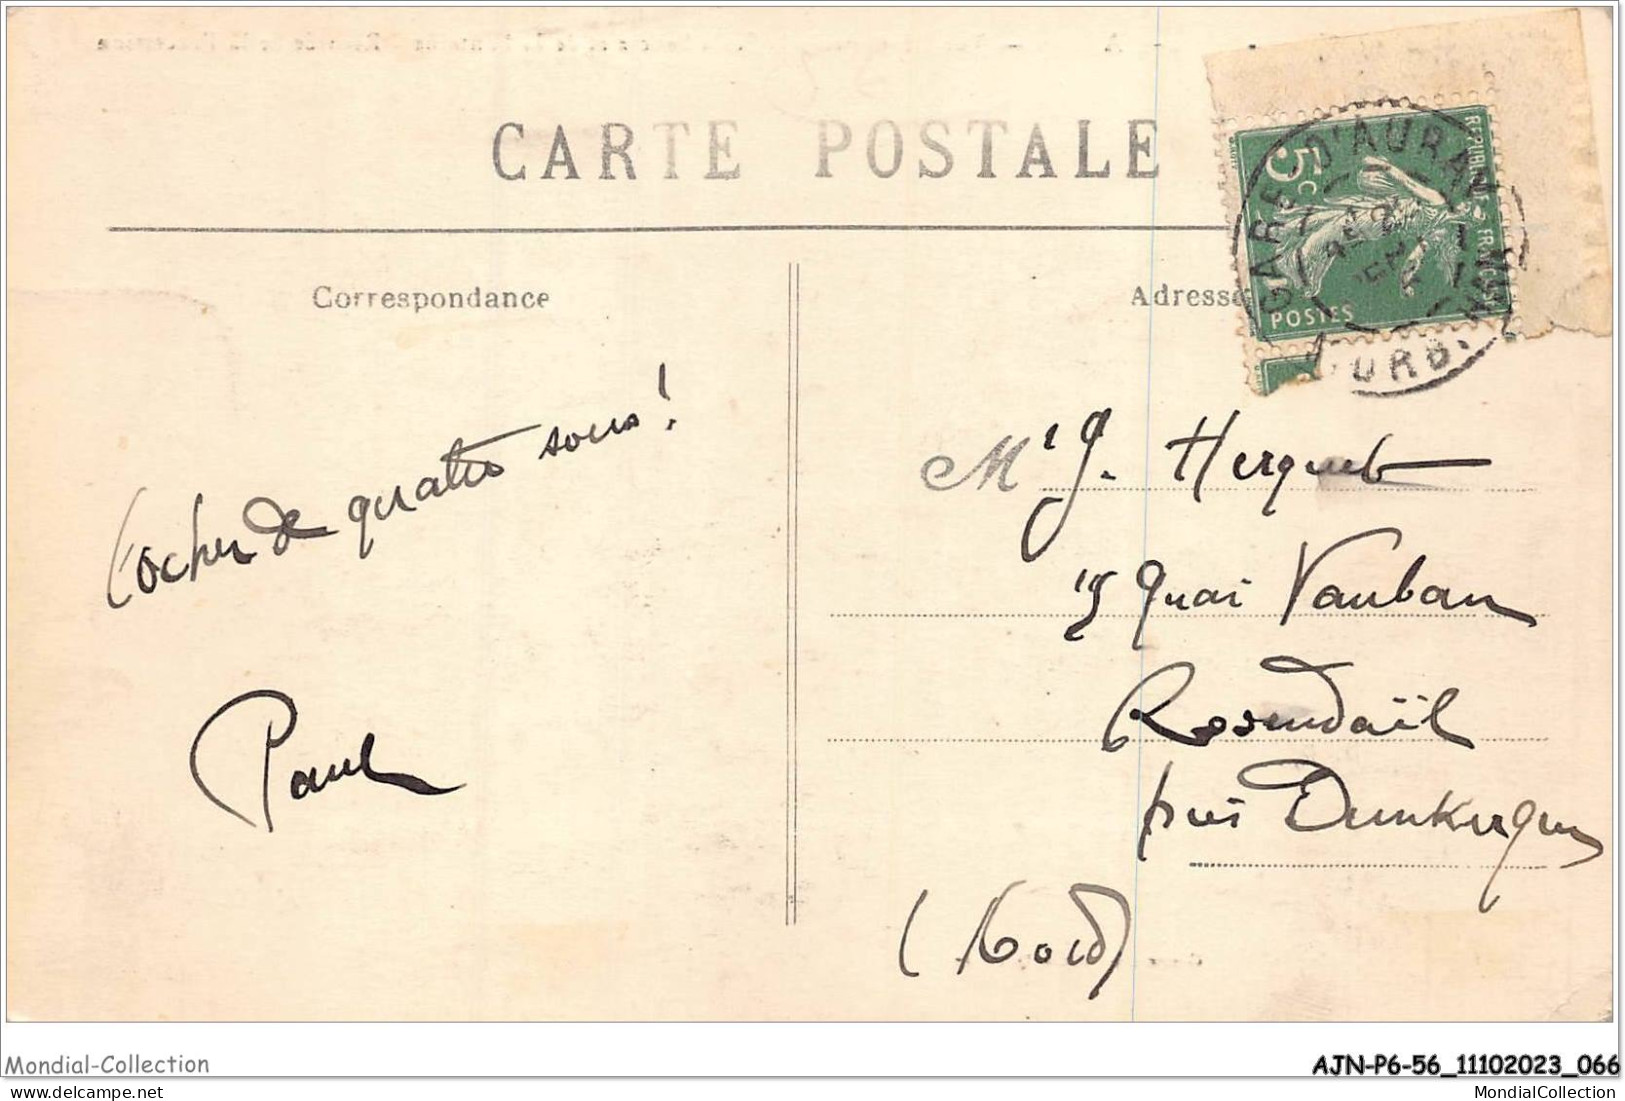 CARTE POSTALE
Correspondance
Adresse
REPUBLIQUE FRANCAISE
5c
POSTES
GARE D'AURAY
MORB.
Cocher de quatre sous!
Paul
Mr J. Herquet
15 Quai Vauban
Rosendaël
près Dunkerque
(Nord)
Mondial-Collection
AJN-P6-56_11102023_066
MondialCollection